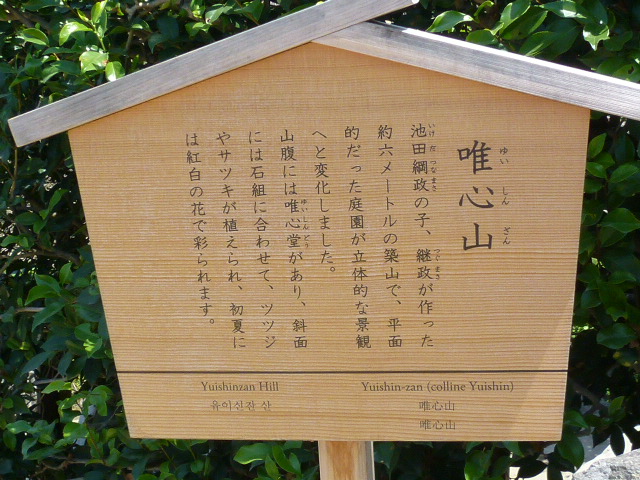 唯心山
ゆいしんざん
池田綱政の子、継政が作った
いけだつなまさ
つぐまさ
約六メートルの築山で、平面
的だった庭園が立体的な景観
へと変化しました。
山腹には唯心堂があり、斜面
ゆいしんどう
には石組に合わせて、ツツジ
やサツキが植えられ、初夏に
は紅白の花で彩られます。
Yuishinzan Hill
유이신잔 산
Yuishin-zan (colline Yuishin)
唯心山
唯心山